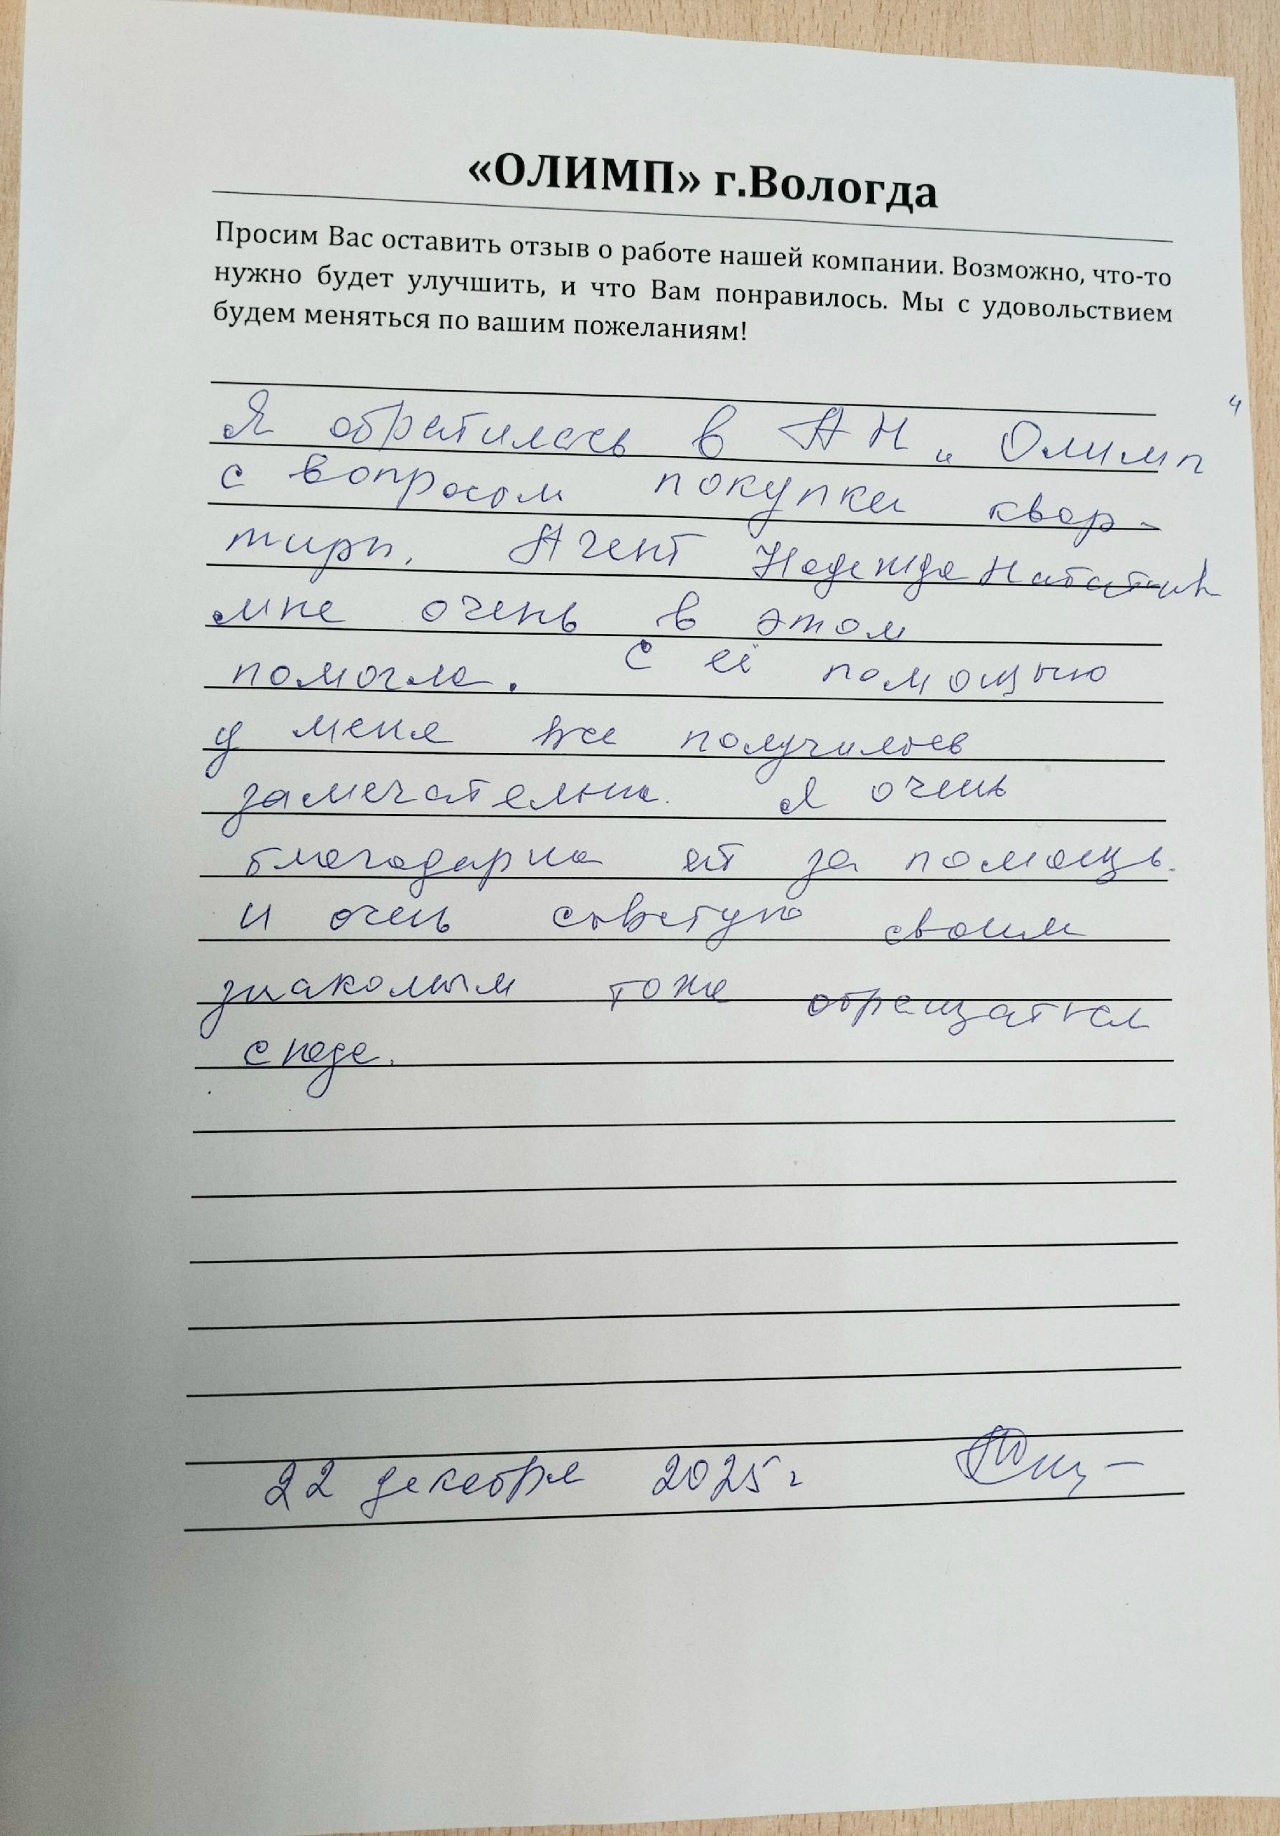 «ОЛИМП» г.Вологда
Просим Вас оставить отзыв о работе нашей компании. Возможно, что-то
нужно будет улучшить, и что Вам понравилось. Мы с удовольствием
будем меняться по вашим пожеланиям!
Я обратилась в АН „Олимп“
с вопросом покупки квар-
тиры. Агент Надежда
мне очень в этом
помогла. С её помощью
у меня все получилось
замечательно. Я очень
благодарна ей за помощь.
И очень советую своим
знакомым тоже обращаться
сюда.
22 декабря 2025 г